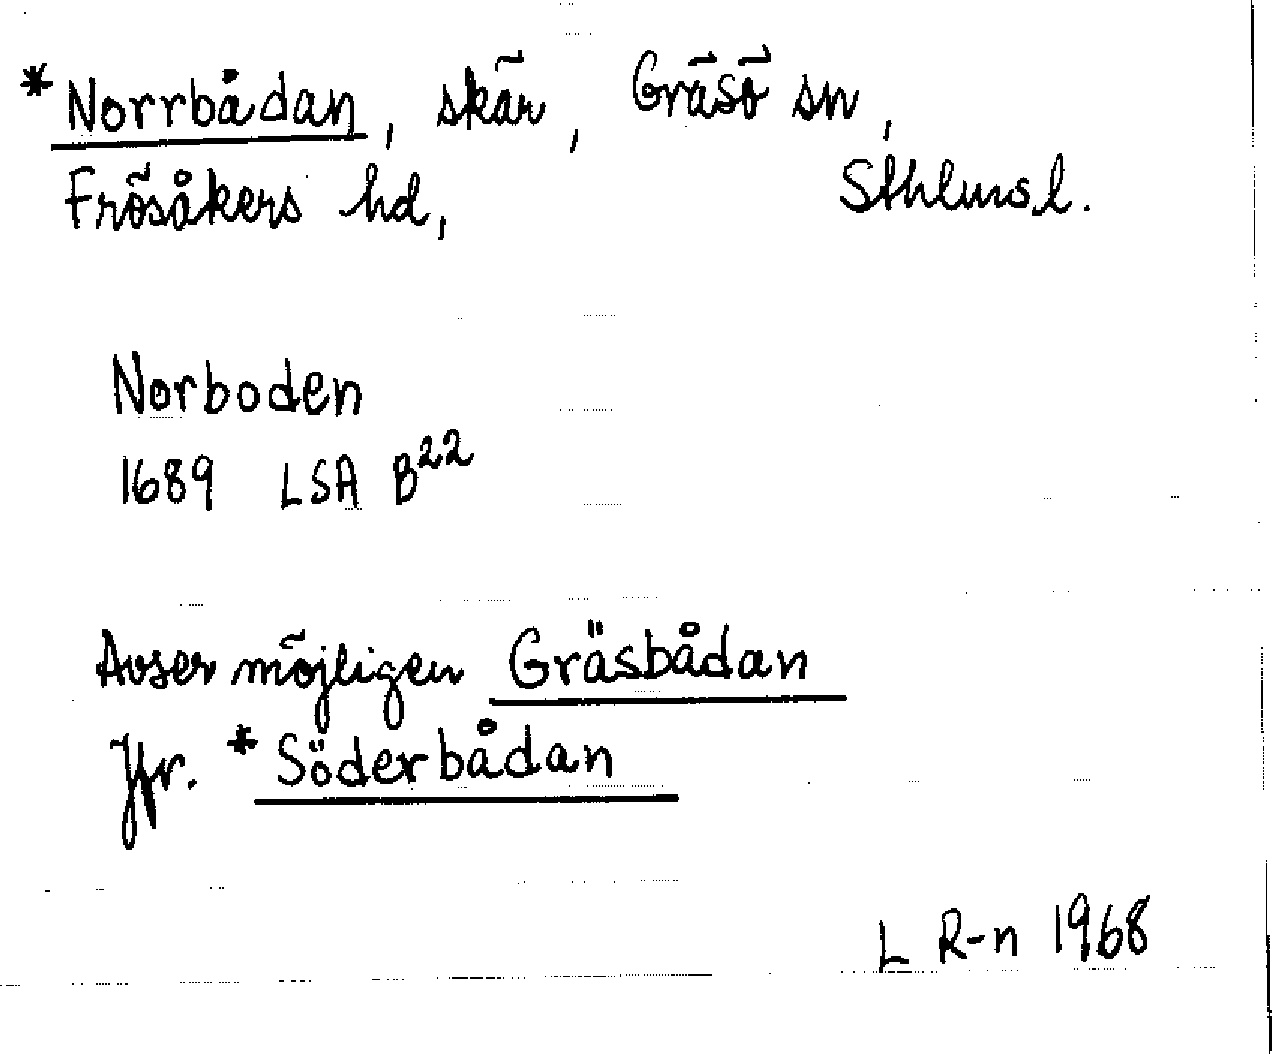 *Norrbådan, skär, Gräsö sn,
Frösåkers hd, Sthlms l.
Norboden
1689 LSA B²²
Avser möjligen Gräsbådan
Jfr. *Söderbådan
L R-n 1968